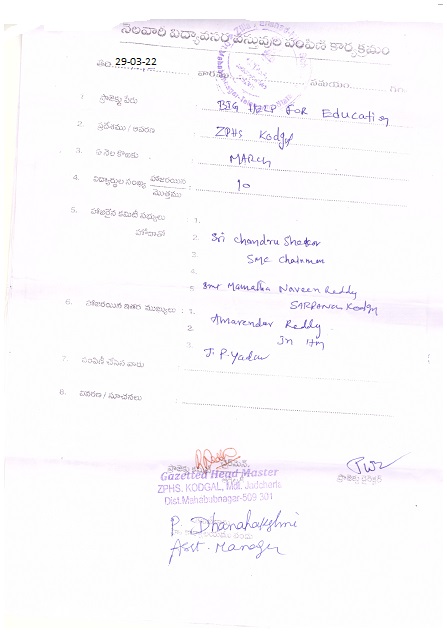 నెలవారి విద్యావసర వస్తువుల పంపిణి కార్యక్రమం
తేది: 29-03-22 వారము సమయం
1. ప్రాజెక్టు పేరు BIG HELP FOR Education
2. ప్రదేశము / ఆవరణ ZPHS Kodgal
3. ఏ నెల కొఱకు MARCH
4. విద్యార్థుల సంఖ్య హాజరయిన / మొత్తము 10
5. హాజరైన కమిటీ సభ్యులు : 1.
హోదాతో 2. Sri Chandra Shakar
3. SMC Chairman
4.
5. Smt Mamatha Naveen Reddy
SARPANCH Kodgal
6. హాజరయిన ఇతర ముఖ్యులు : 1. Amarender Reddy
2. In HM
3. J. P. Yadav
7. పంపిణీ చేసిన వారు
8. వివరణ / సూచనలు
Gazetted Head Master
ZPHS. KODGAL, Mdl. Judcharla
Dist.Mahabubnagar-509 301
P. Dhanalakshmi
Asst. Manager